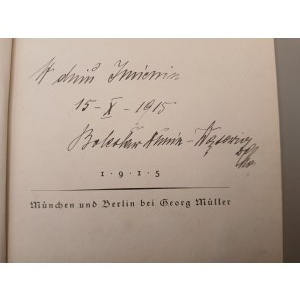 W dniu Imienin
15-X-1915
Bolesław Wieniawa
1·9·1·5
München und Berlin bei Georg Müller